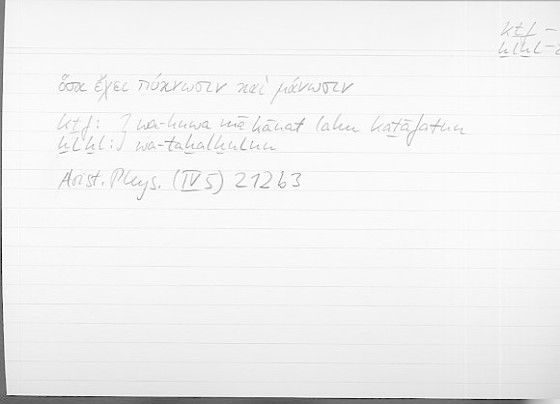 kṯf –
ḫlḫl –
ὅσα ἔχει πύκνωσιν καὶ μάνωσιν
kṯf: } wa-huwa mā kānat lahu kaṯāfatun
ḫlḫl: } wa-taḫalḫulun
Arist. Phys. (IV 5) 212b3